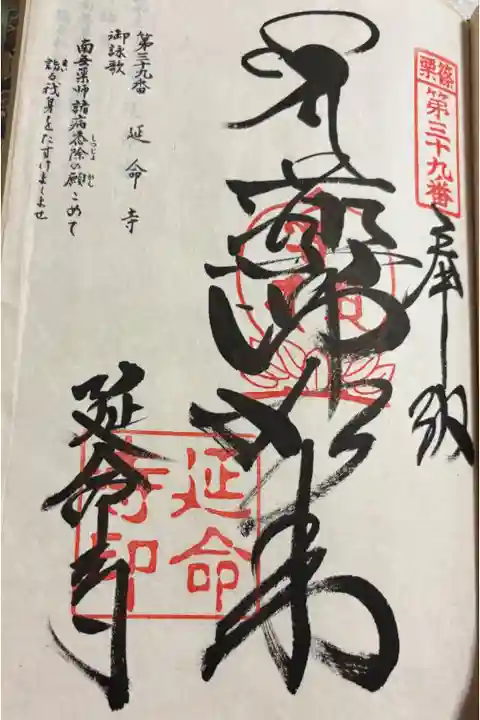 篠栗
第三十九番
奉拝
薬師如来
延命寺
延命
寺印
第三十九番 延命寺
御詠歌
南無薬師諸病悉除の願こめて
しつじよ
詣る我身をたすけましませ